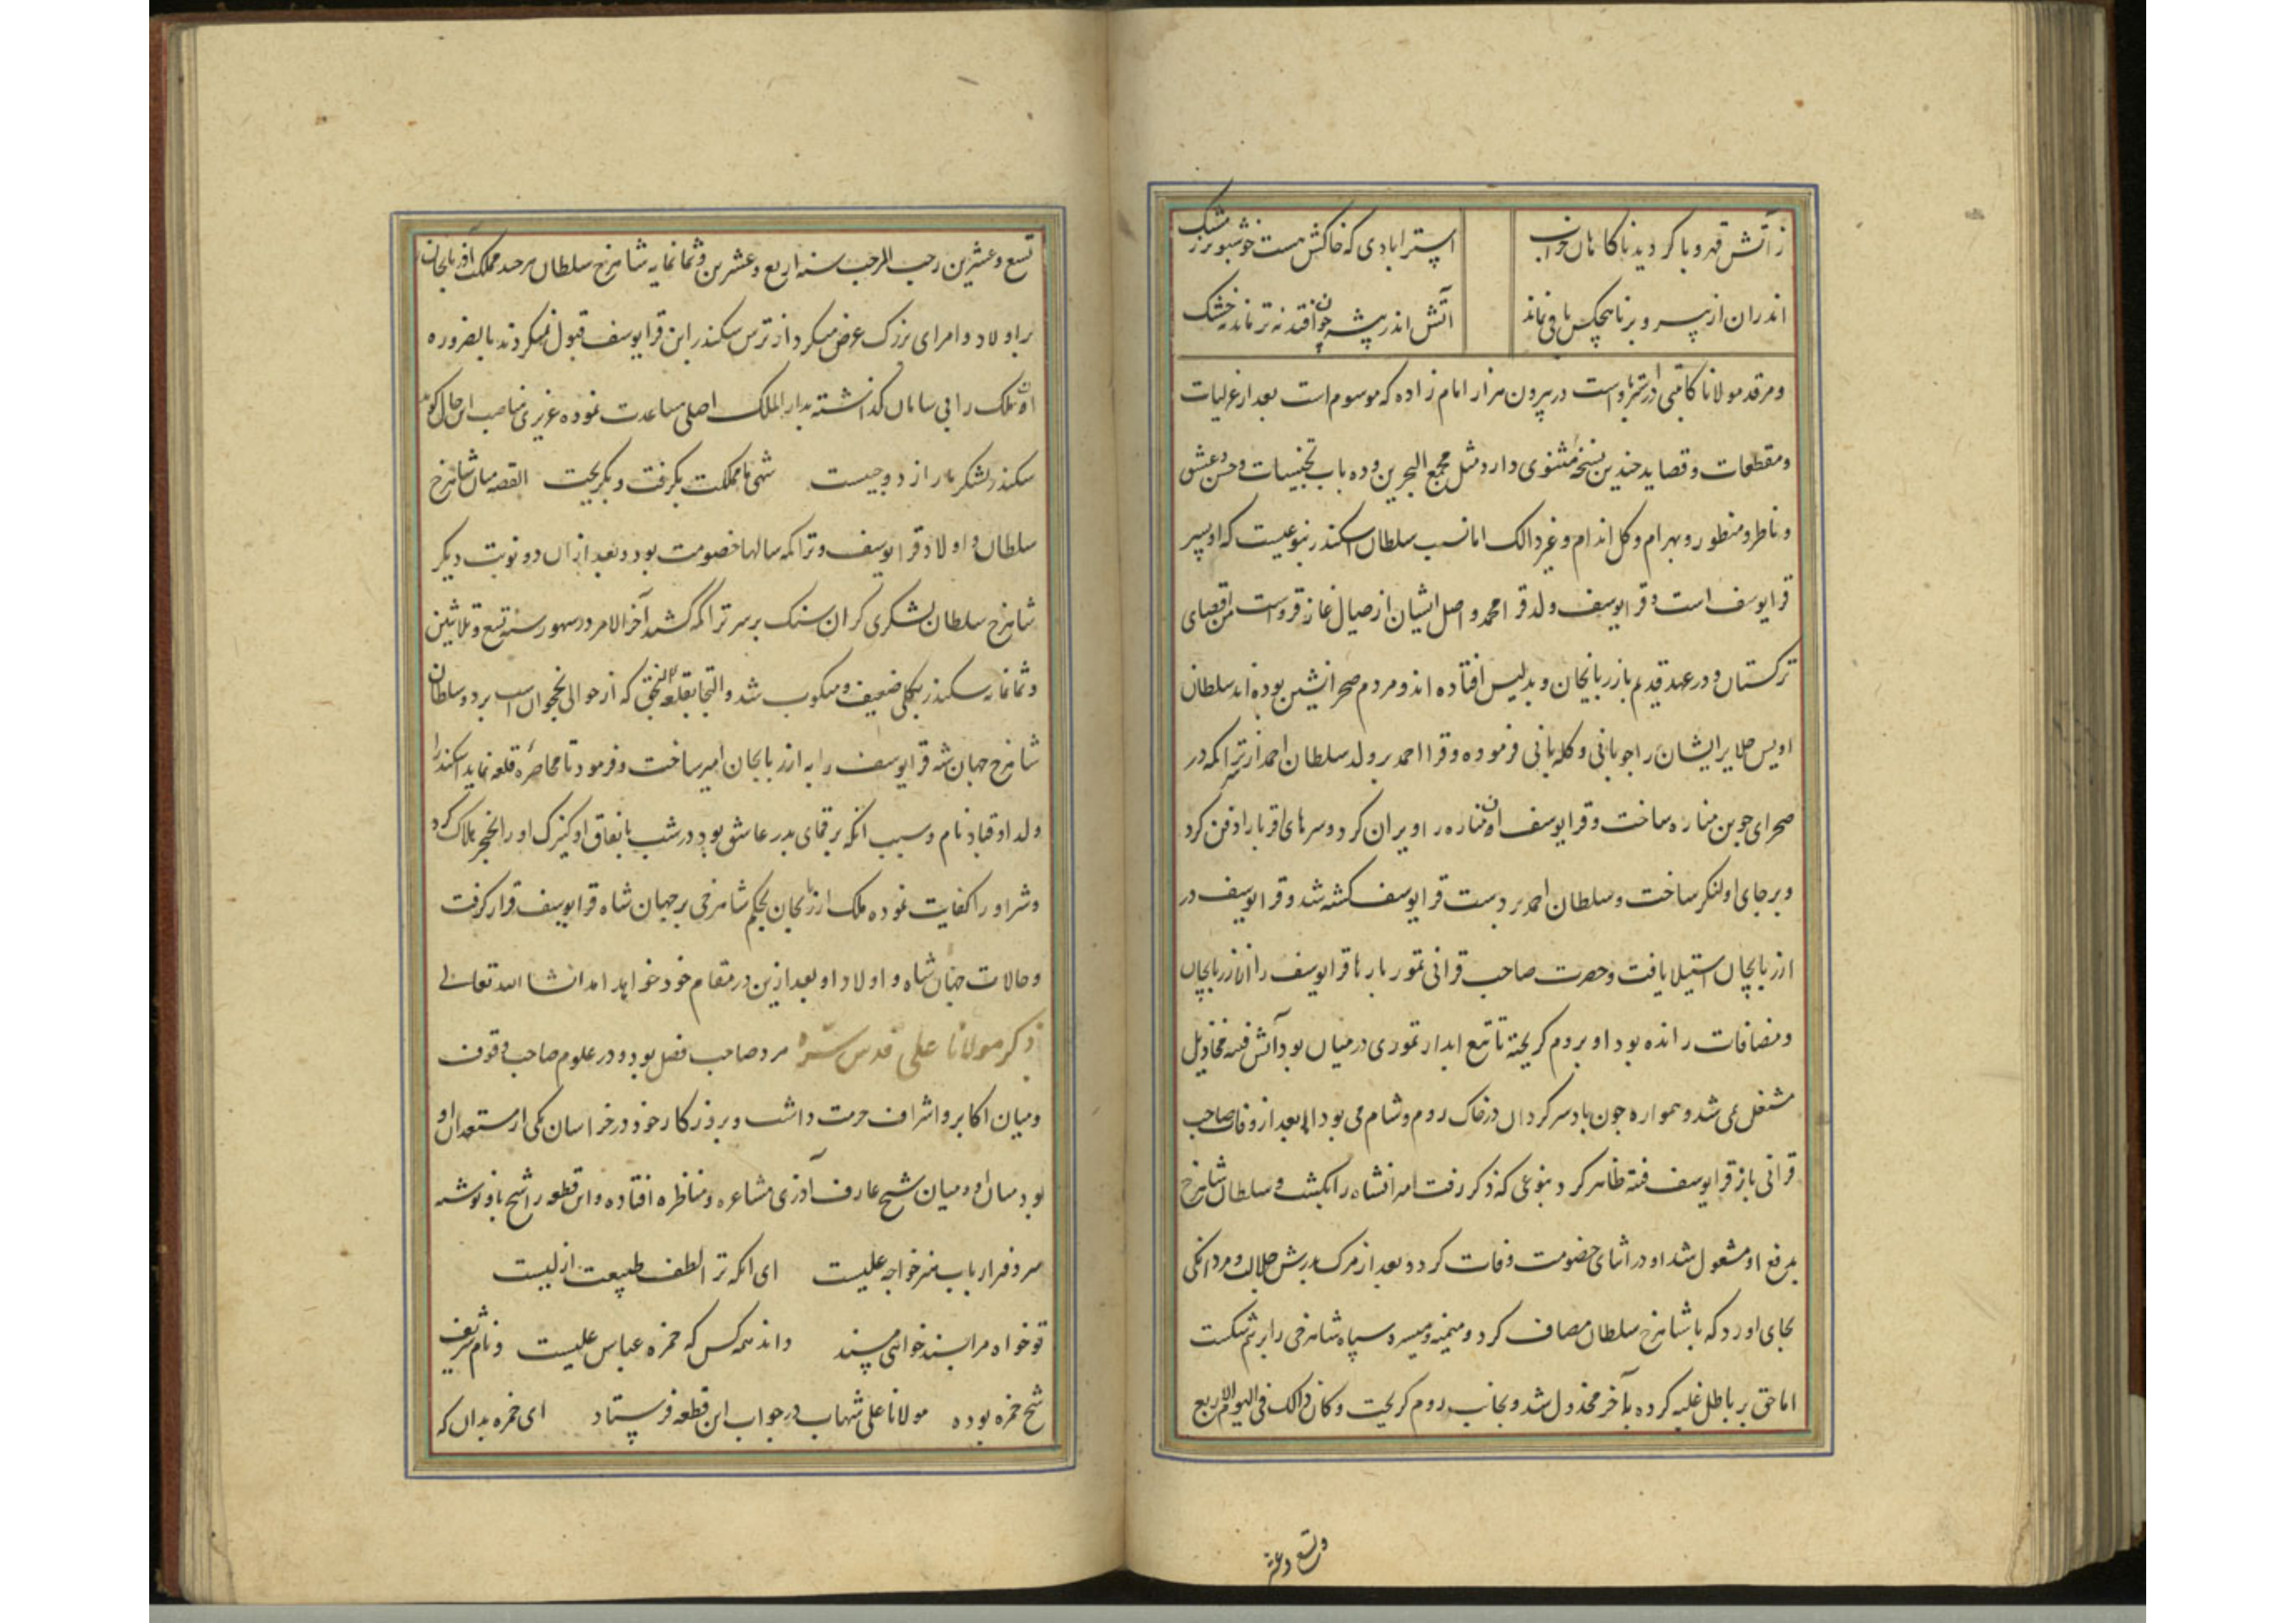 ز آتش قهر و با کردید ناکاهان خراب استرابادی که خاکش هست خوشبوتر ز مشک
اندران از پیر و برنا هیچکس باقی نماند آتش اندر پیشه چون افتد نه تر ماند نه خشک
و مرقد مولانا کاتبی در استرابادست در بیرون مزار امام زاده که موسوم است بعد از غزلیات
و مقطعات و قصاید چندین نسخه مثنوی دارد مثل مجمع البحرین و ده باب تجنیسات و حسن و عشق
و ناظر و منظور و بهرام و کل اندام و غیر ذالک اما نسب سلطان اسکندر بنوعیست که او پسر
قرایوسف است و قرایوسف ولد قرا محمد و اصل ایشان از جبال غاز قروست من اقصای
ترکستان و در عهد قدیم بازربایجان و بدلیس افتاده اند و مردم صحرانشین بوده اند سلطان
اویس جلایر ایشان را چوبانی و کله بانی فرموده و قرا احمد بر ولد سلطان احمد از تراکمه در
صحرای جوین مناره ساخت و قرایوسف ان مناره را ویران کرد و سرهای اقربا را دفن کرد
و بر جای او لنکر ساخت و سلطان احمد بر دست قرایوسف کشته شد و قرایوسف در
ازربایجان استیلا یافت و حضرت صاحب قرانی تمور بارها قرایوسف را از ازربایجان
و مضافات رانده بود او بروم کریخته تا تیغ ابدار تموری در میان بود آتش فتنه مخاذیل
مشتعل نمی شد و همواره چون باد سرکردان در خاک روم و شام می بود اما بعد از وفات صاحب
قرانی باز قرایوسف فتنه ظاهر کرد بنوعی که ذکر رفت امرانشاه را بکشت و سلطان شاهرخ
بدفع او مشغول شد او در اثنای خصومت وفات کرد و بعد از مرک پدرش جلالت و مردانکی
بجای اورد که با شاهرخ سلطان مصاف کرد و میمنه و میسره سپاه شاهرخی را بر هم شکست
اما حق بر باطل غلبه کرده بآخر مخذول شد و بجانب روم کریخت و کان ذالک فی الیوم الاربع
و تسع و عشر
تسع و عشرین رجب المرجب سنه اربع و عشرین و ثمانمایه شاهرخ سلطان هر چند مملکت آذربایجان
بر اولاد و امرای بزرک عرض میکرد از ترس سکندر ابن قرایوسف قبول نمیکردند بالضروره
ان ملک را بی سامان کذاشته بدار الملک اصلی مساعدت نموده عزیزی مناسب این حال کوید
سکندر لشکر ما را زد و جست شهی ما مملکت بکرفت و بکریخت القصه میان شاهرخ
سلطان و اولاد قرایوسف و تراکمه سالها خصومت بود و بعد از ان دو نوبت دیکر
شاهرخ سلطان لشکری کران سنک بر سر تراکمه کشید آخر الامر در شهور سنه تسع و ثلاثین
و ثمانمایه سکندر بکلی ضعیف و منکوب شد و التجا بقلعه النجق که از حوالی نخجوان است برد و سلطان
شاهرخ جهان شه قرایوسف را به ازربایجان امیر ساخت و فرمود تا محاصره قلعه نماید اسکندر را
ولد او قباد نام و سبب انکه بر قمای پدر عاشق بود در شب باتفاق او کنیزک او را بخنجر هلاک کرد
و شر او را کفایت نموده ملک ازربایجان بحکم شاهرخی بر جهان شاه قرایوسف قرار کرفت
و حالات جهان شاه و اولاد او بعد ازین در مقام خود خواهد امد انشا الله تعالی
ذکر مولانا علی قدس سره مرد صاحب فضل بود و در علوم صاحب وقوف
و میان اکابر و اشراف حرمت داشت و بروزکار خود در خراسان یکی از مستعدان او
بود میان او و میان شیخ عارف آذری مشاعره و مناظره افتاده و این قطعه را شیخ باو نوشته
سر دفتر ارباب هنر خواجه علیست ای انکه ترا لطف طبیعت ازلیست
تو خواه مرا پسند خواهی مپسند داند همه کس که حمزه عباس علیست و نام شریف
شیخ حمزه بوده مولانا علی شهاب در جواب این قطعه فرستاد ای حمزه بدان که